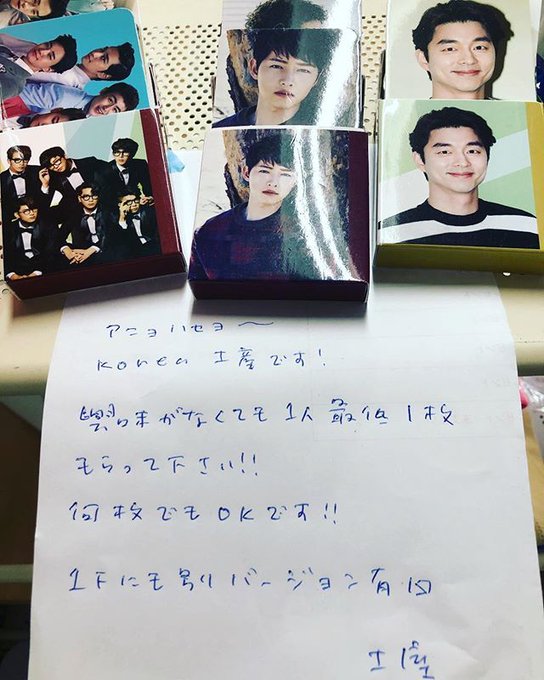 アニョハセヨ〜
Korea 土産です!
興味がなくても1人最低1枚
もらって下さい!!
何枚でもOKです!!
1F にも別バージョン有
土